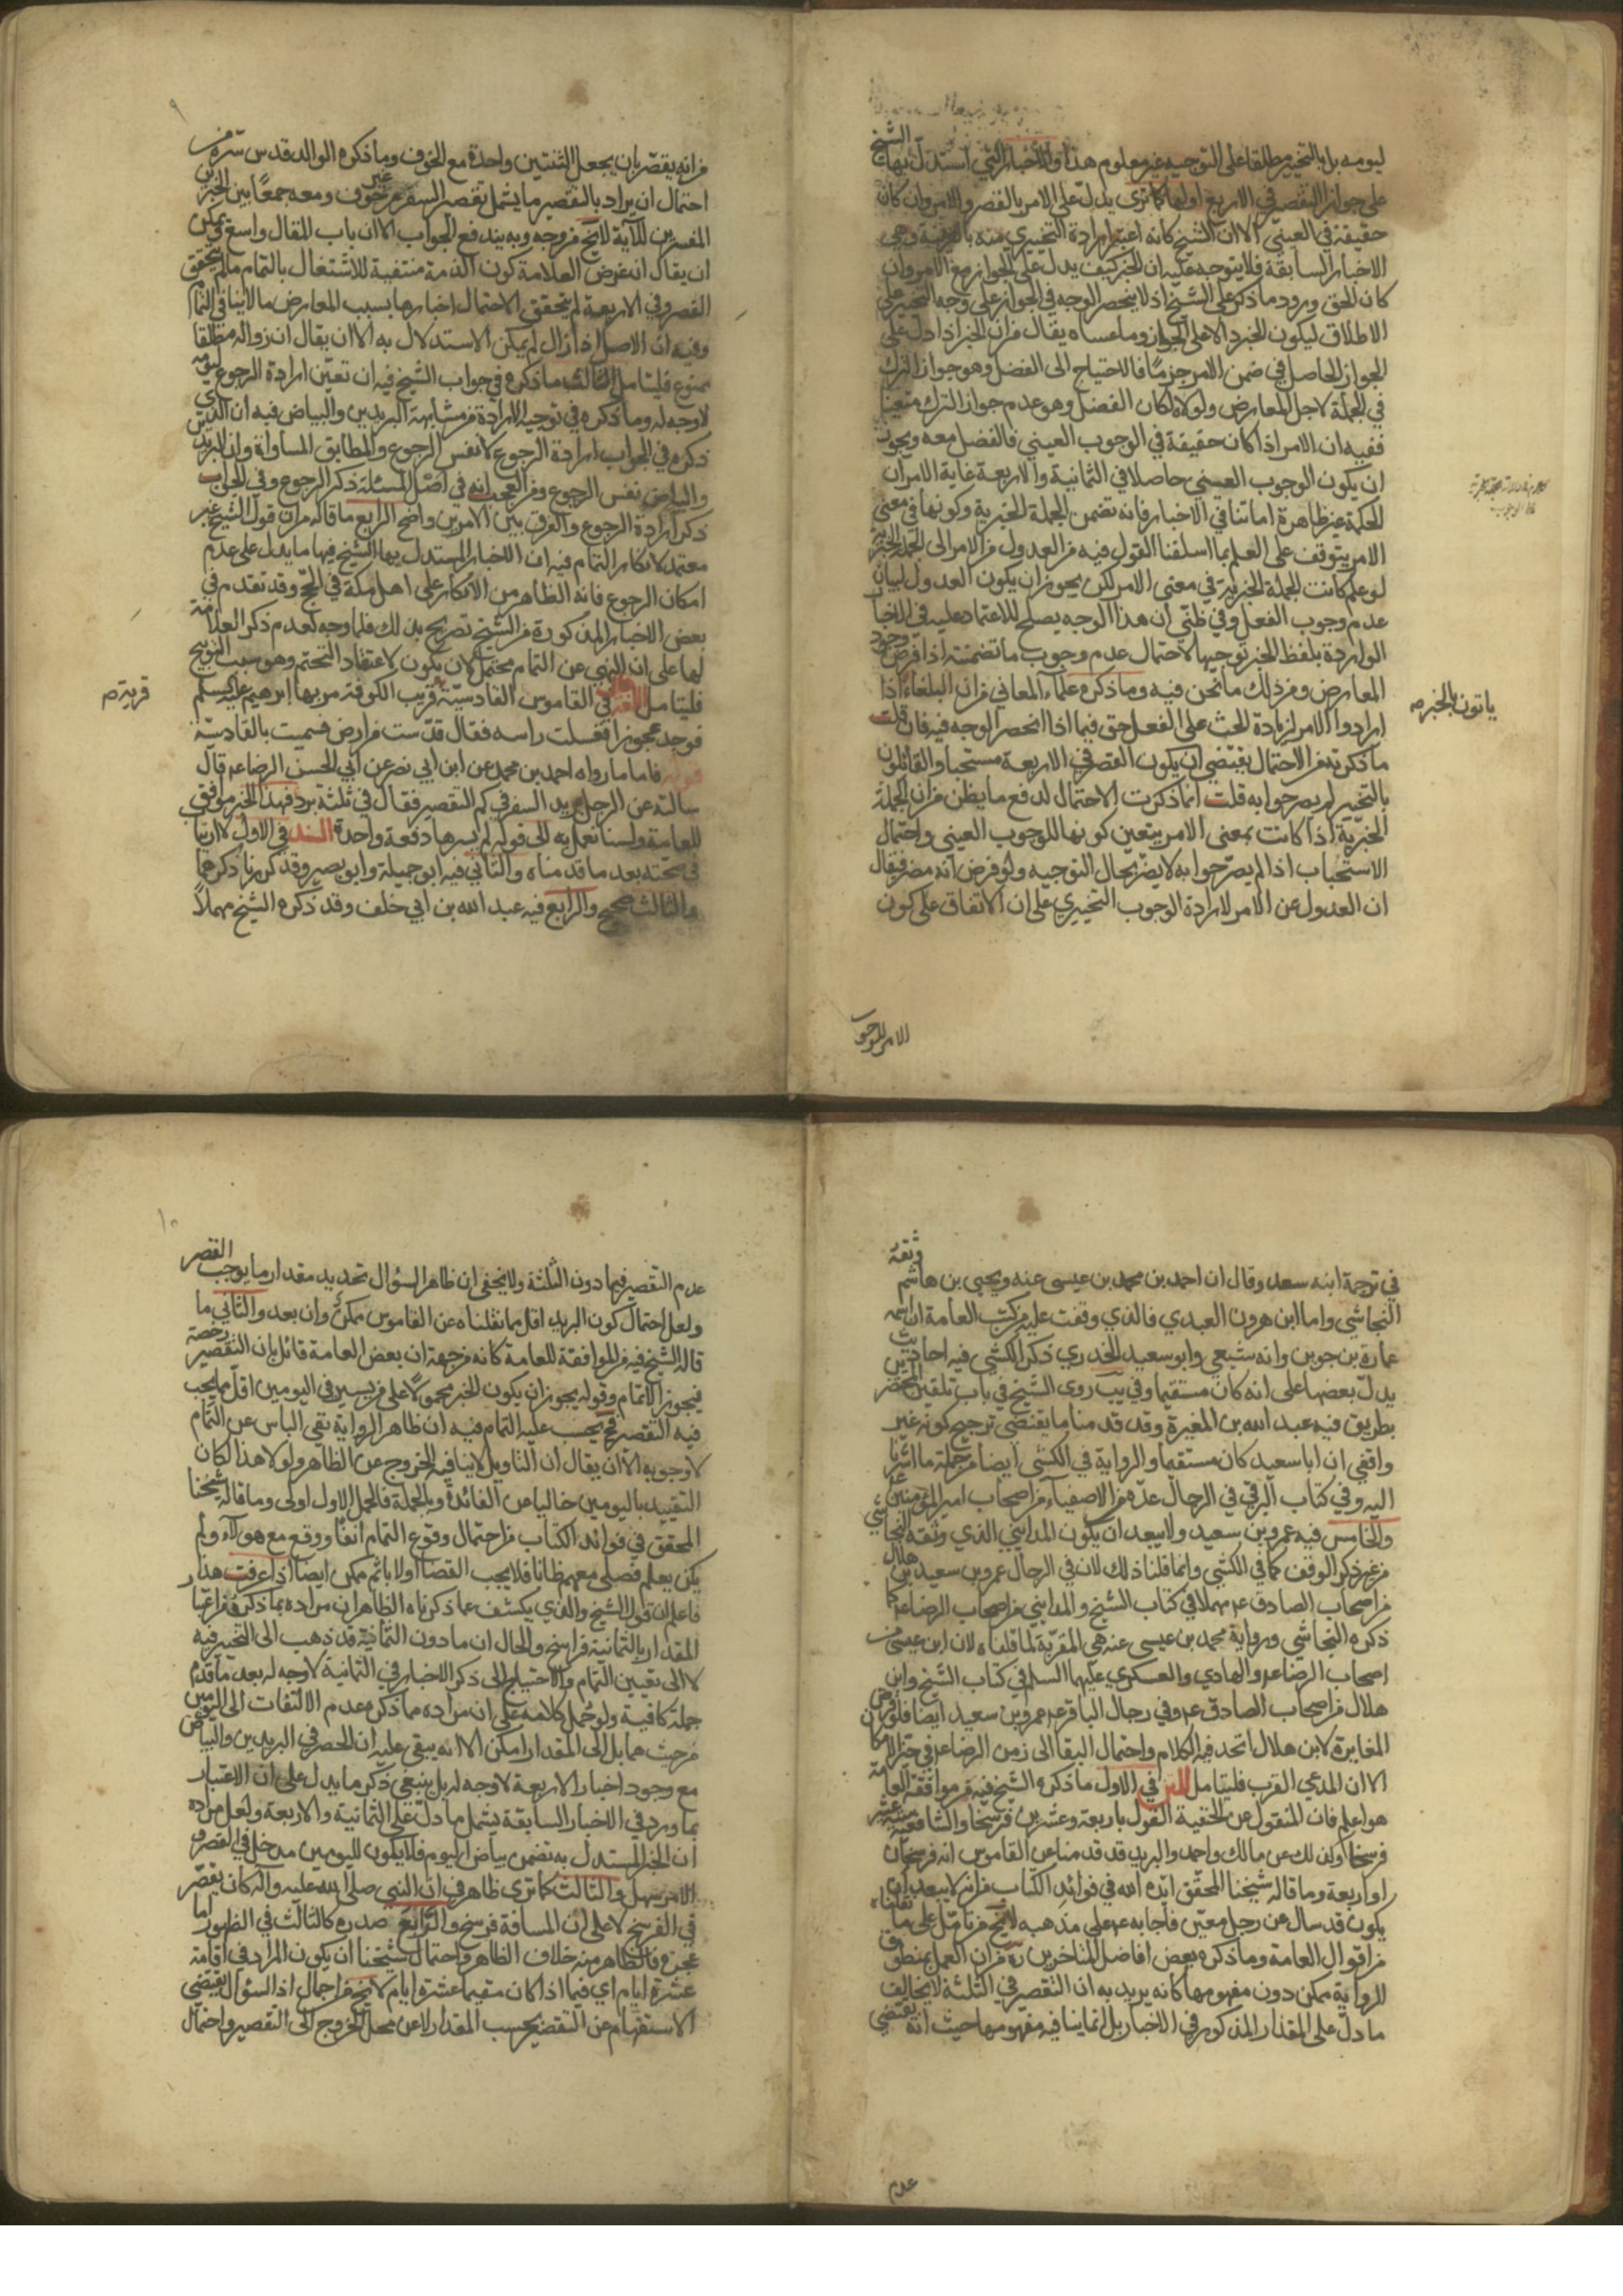 ليومه بل بالتخيير مطلقا على التوجيه غير معلوم هذا والأخبار التي استدل بها الشيخ
على جواز التقصير في الاربع اولها كما ترى يدل على الامر بالقصر والامر وان كان
حقيقة في العيني الا ان الشيخ كانه اعتبر ارادة التخييري منه بالقرينة وهي
الاخبار السابقة فلا يتوجه عليه ان الخبر كيف يدل على الجواز مع الامر وان
كان الحق ورود ما ذكر على الشيخ اذ لا ينحصر الوجه في الجواز على وجه التخيير على
الاطلاق ليكون الخبر دالا على الجواز وما عساه يقال من ان الخبر اذا دل على
الجواز الحاصل في ضمن الامر جزما فالاحتياج الى الفصل وهو جواز الترك
في الجملة لاجل المعارض ولولاه لكان الفصل وهو عدم جواز الترك متعينا
ففيه ان الامر اذا كان حقيقة في الوجوب العيني فالفصل معه ويجوز
ان يكون الوجوب العيني حاصلا في الثمانية والاربعة غاية الامر ان
الحكمة غير ظاهرة اما تنافي الاخبار فانه تضمن الجملة الخبرية وكونها في معنى
الامر يتوقف على العلم بما اسلفنا القول فيه من العدول من الامر الى الجملة الخبرية
لو علم كانت الجملة الخبرية في معنى الامر لكن يجوز ان يكون العدول لبيان
عدم وجوب الفعل وفي ظني ان هذا الوجه يصلح للاعتماد عليه في الاخبار
الواردة بلفظ الخبر توجيها لاحتمال عدم وجوب ما تضمنته اذا فرض وجود
المعارض ومن ذلك ما نحن فيه وما ذكره علماء المعاني من ان البلغاء اذا
ارادوا الامر لزيادة الحث على الفعل حق فيما اذا انحصر الوجه فيه فان قلت
ما ذكرته من الاحتمال يقتضي ان يكون القصر في الاربعة مستحبا والقائلون
بالتخيير لم يصرحوا به قلت انما ذكرت الاحتمال لدفع ما يظن من ان الجملة
الخبرية اذا كانت بمعنى الامر يتعين كونها للوجوب العيني واحتمال
الاستحباب اذا لم يصرحوا به لا يضر بحال التوجيه ولو فرض انه مضر فيقال
ان العدول عن الامر لارادة الوجوب التخييري على ان الاتفاق على كون
ياتون بالخبر م
الامر للوجوب
٩
من انه يقصر بان يجعل الثنتين واحدة مع الخوف وما ذكره الوالد قدس سره من
احتمال ان يراد بالتقصير ما يشمل تقصير السفر من غير خوف ومعه جمعا بين الخبرين
المفسرين للآية لا يخ من وجه وبه يندفع الجواب الا ان باب المقال واسع ويمكن
ان يقال ان غرض العلامة كون الذمة منتفية للاشتغال بالتمام ما لم يتحقق
القصر وفي الاربعة لم يتحقق الاحتمال اخبارها بسبب المعارض ما لا ينافي التمام
وفيه ان الاصل اذا زال لم يمكن الاستدلال به الا ان يقال ان زواله مطلقا
ممنوع فليتامل الثالث ما ذكره في جواب الشيخ فيه ان تعين ارادة الرجوع ليومه
لا وجه له وما ذكره في توجيه الارادة من مشابهة البريدين والبياض فيه ان الذي
ذكره في الجواب ارادة الرجوع لا نفس الرجوع والمطابق المساواة وان البريدين
والبياض نفس الرجوع ومن العجب انه في اصل المسئلة ذكر الرجوع وفي الجواب
ذكر ارادة الرجوع والفرق بين الامرين واضح الرابع ما قاله من ان قول الشيخ غير
معتمد لانكار التمام فيه ان الاخبار المستدل بها الشيخ فيها ما يدل على عدم
امكان الرجوع فانه الظاهر من الانكار على اهل مكة في الحج وقد تقدم في
بعض الاخبار المذكورة من الشيخ تصريح بذلك فلا وجه لعدم ذكر العلامة
لها على ان النهي عن التمام محتمل لان يكون لاعتقاد التحتم وهو سبب التوبيخ
فليتامل اللغة قال في القاموس القادسية قريب الكوفة مر بها ابرهيم عليه السلم
فوجد عجوزا فغسلت راسه فقال قدست من ارض فسميت بالقادسية
قوله فاما ما رواه احمد بن محمد عن ابن ابي نصر عن ابي الحسن الرضا عم قال
سالته عن الرجل يريد السفر في كم التقصير فقال في ثلثة برد فهذا الخبر موافق
للعامة ولسنا نعمل به الى قوله لم يسرها دفعة واحدة السند في الاول لا ارتياب
في صحته بعد ما قدمناه والثاني فيه ابو جميلة وابو بصير وقد كررنا ذكرهما
والثالث صحيح والرابع فيه عبد الله بن ابي خلف وقد ذكره الشيخ مهملا
قرية م
في ترجمة ابنه سعد وقال ان احمد بن محمد بن عيسى عنه ويحيى بن هاشم وثقه
النجاشي واما ابن هرون العبدي فالذي وقفت عليه من كتب العامة ان اسمه
عمارة بن جوين وانه شيعي وابو سعيد الخدري ذكر الكشي فيه احاديث
يدل بعضها على انه كان مستقيما وفي يب روى الشيخ في باب تلقين المحتضر
بطريق فيه عبد الله بن المغيرة وقد قدمنا ما يقتضي ترجيح كونه غير
واقفي ان ابا سعيد كان مستقيما والرواية في الكشي ايضا من جملة ما اشرنا
اليه وفي كتاب البرقي في الرجال عده من الاصفياء من اصحاب امير المؤمنين عم
والخامس فيه عمرو بن سعيد ولا يبعد ان يكون المدايني الذي وثقه النجاشي
من غير ذكر الوقف كما في الكشي وانما قلنا ذلك لان في الرجال عمرو بن سعيد بن هلال
من اصحاب الصادق عم مهملا في كتاب الشيخ والمدايني من اصحاب الرضا عم كما
ذكره النجاشي ورواية محمد بن عيسى عنه هي المقربة لما قلناه لان ابن عيسى من
اصحاب الرضا عم والهادي والعسكري عليهما السلم في كتاب الشيخ وابن
هلال من اصحاب الصادق عم وفي رجال الباقر عم عمرو بن سعيد ايضا فلو فرض
المغايرة لابن هلال اتحد فيه الكلام واحتمال البقا الى زمن الرضا عم في حيز الامكان
الا ان المدعي القرب فليتامل المتن في الاول ما ذكره الشيخ فيه من موافقة العامة
هو اعلم فان المنقول عن الحنفية القول باربعة وعشرين فرسخا والشافعية ستة عشر
فرسخا وكذلك عن مالك واحمد والبريد قد قدمنا عن القاموس انه فرسخان
او اربعة وما قاله شيخنا المحقق ايده الله في فوائد الكتاب من انه لا يبعد ان
يكون قد سال عن رجل معين فاجابه عم على مذهبه لا يخ من تامل على ما نقلناه
من اقوال العامة وما ذكره بعض افاضل المتاخرين ره من ان العمل بمنطوق
الرواية ممكن دون مفهومها كانه يريد به ان التقصير في الثلثة لا يخالف
ما دل على المقدار المذكور في الاخبار بل انما ينافيه مفهومها حيث انه يقتضي
عدم
١٠
عدم التقصير فيما دون الثلثة ولا يخفى ان ظاهر السؤال تحديد مقدار ما يوجب القصر
ولعل احتمال كون البريد اقل مما نقلناه عن القاموس ممكن وان بعد والثاني ما
قاله الشيخ فيه من الموافقة للعامة كانه من جهة ان بعض العامة قائل بان التقصير رخصة
فيجوز الاتمام وقوله يجوز ان يكون الخبر محمولا على من يسير في اليومين اقل مما يجب
فيه التقصير فح يجب عليه التمام فيه ان ظاهر الرواية نفي الباس عن التمام
لا وجوبه الا ان يقال ان التاويل لا ينافيه الخروج عن الظاهر ولولا هذا لكان
التقييد باليومين خاليا عن الفائدة وبالجملة فالحمل الاول اولى وما قاله شيخنا
المحقق في فوائد الكتاب من احتمال وقوع التمام انفا ووقع مع هؤلاء ولم
يكن يعلم فصلى معهم ظانا فلا يجب القضا اولا باثم ممكن ايضا اذا عرفت هذا
فاعلم ان قول الشيخ والذي يكشف عما ذكرناه الظاهر ان مراده بما ذكره
المقدار بالثمانية فراسخ والحال ان ما دون الثمانية قد ذهب الى التخيير فيه
لا الى تعيين التمام والاحتياج الى ذكر الاخبار في الثمانية لا وجه له بعد ما قدم
جملة كافية ولو حمل كلامه على ان مراده مما ذكره عدم الالتفات الى اليومين
من حيث هما بل الى المقدار امكن الا انه يبقى عليه ان الحصر في البريدين والبياض
مع وجود اخبار الاربعة لا وجه له بل ينبغي ذكر ما يدل على ان الاعتبار
بما ورد في الاخبار السابقة يشمل ما دل على الثمانية والاربعة ولعل مراده
ان الخبر المستدل به تضمن بياض اليوم فلا يكون لليومين مدخل في القصر و
الامر سهل والثالث كما ترى ظاهر في ان النبي صلى الله عليه واله كان يقصر
في الفرسخ لا على ان المسافة فرسخ والرابع صدره كالثالث في الظهور اما
عجزه فالظاهر منه خلاف الظاهر واحتمال شيخنا ان يكون المراد في اقامة
عشرة ايام اي فيما اذا كان مقيما عشرة ايام لا يخ من اجمال اذ السؤال يقتضي
الاستفهام عن التقصير بحسب المقدار لا عن محل الخروج الى التقصير واحتمال